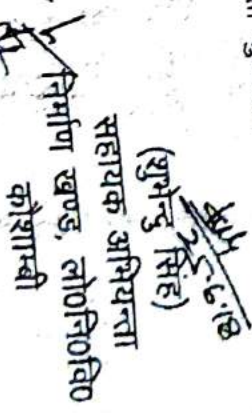 25.6.18
(शुभेन्दु सिंह)
सहायक अभियन्ता
निर्माण खण्ड, लो०नि०वि०
कौशाम्बी